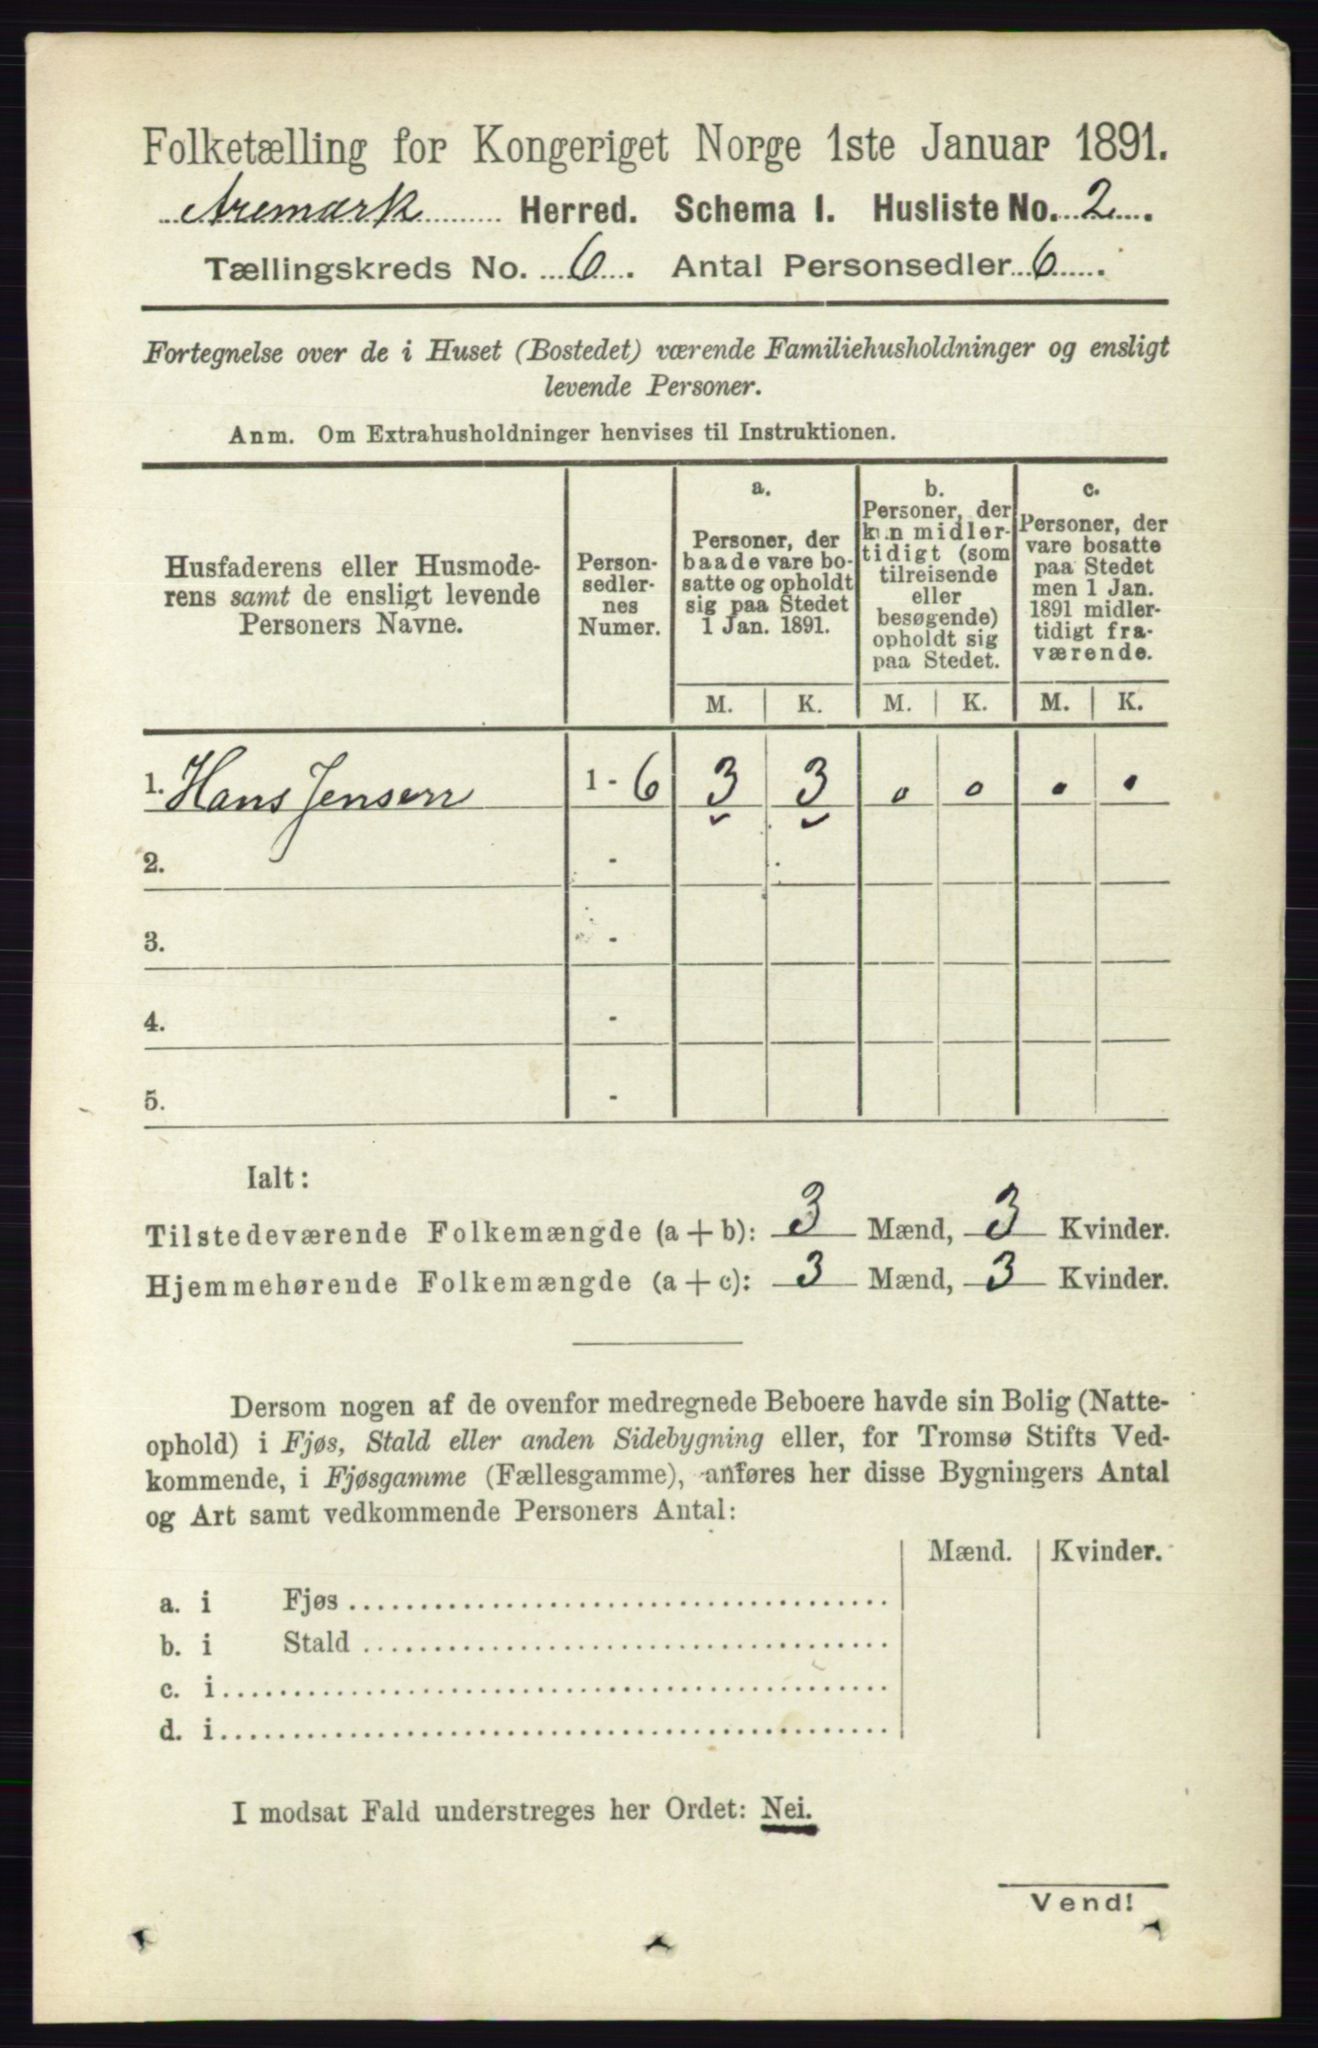 Folketælling for Kongeriget Norge 1ste Januar 1891.
Aremark Herred. Schema I. Husliste No. 2.
Tællingskreds No. 6. Antal Personsedler 6.
Fortegnelse over de i Huset (Bostedet) værende Familiehusholdninger og ensligt
levende Personer.
Anm. Om Extrahusholdninger henvises til Instruktionen.
Husfaderens eller Husmode-
rens samt de ensligt levende
Personers Navne.
Person-
sedler-
nes
Numer.
a.
Personer, der
baade vare bo-
satte og opholdt
sig paa Stedet
1 Jan. 1891.
b.
Personer, der
kun midler-
tidigt (som
tilreisende
eller
besøgende)
opholdt sig
paa Stedet.
c.
Personer, der
vare bosatte
paa Stedet
men 1 Jan.
1891 midler-
tidigt fra-
værende.
M. K. M. K. M. K.
1. Hans Jensen 1 - 6 3 3 0 0 0 0
2. -
3. -
4. -
5. -
Ialt:
Tilstedeværende Folkemængde (a + b): 3 Mænd, 3 Kvinder.
Hjemmehørende Folkemængde (a + c): 3 Mænd, 3 Kvinder.
Dersom nogen af de ovenfor medregnede Beboere havde sin Bolig (Natte-
ophold) i Fjøs, Stald eller anden Sidebygning eller, for Tromsø Stifts Ved-
kommende, i Fjøsgamme (Fællesgamme), anføres her disse Bygningers Antal
og Art samt vedkommende Personers Antal:
Mænd. Kvinder.
a. i Fjøs
b. i Stald
c. i
d. i
I modsat Fald understreges her Ordet: Nei.
Vend!